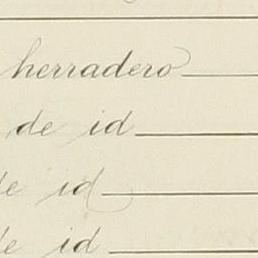 herradero
de id
de id
de id